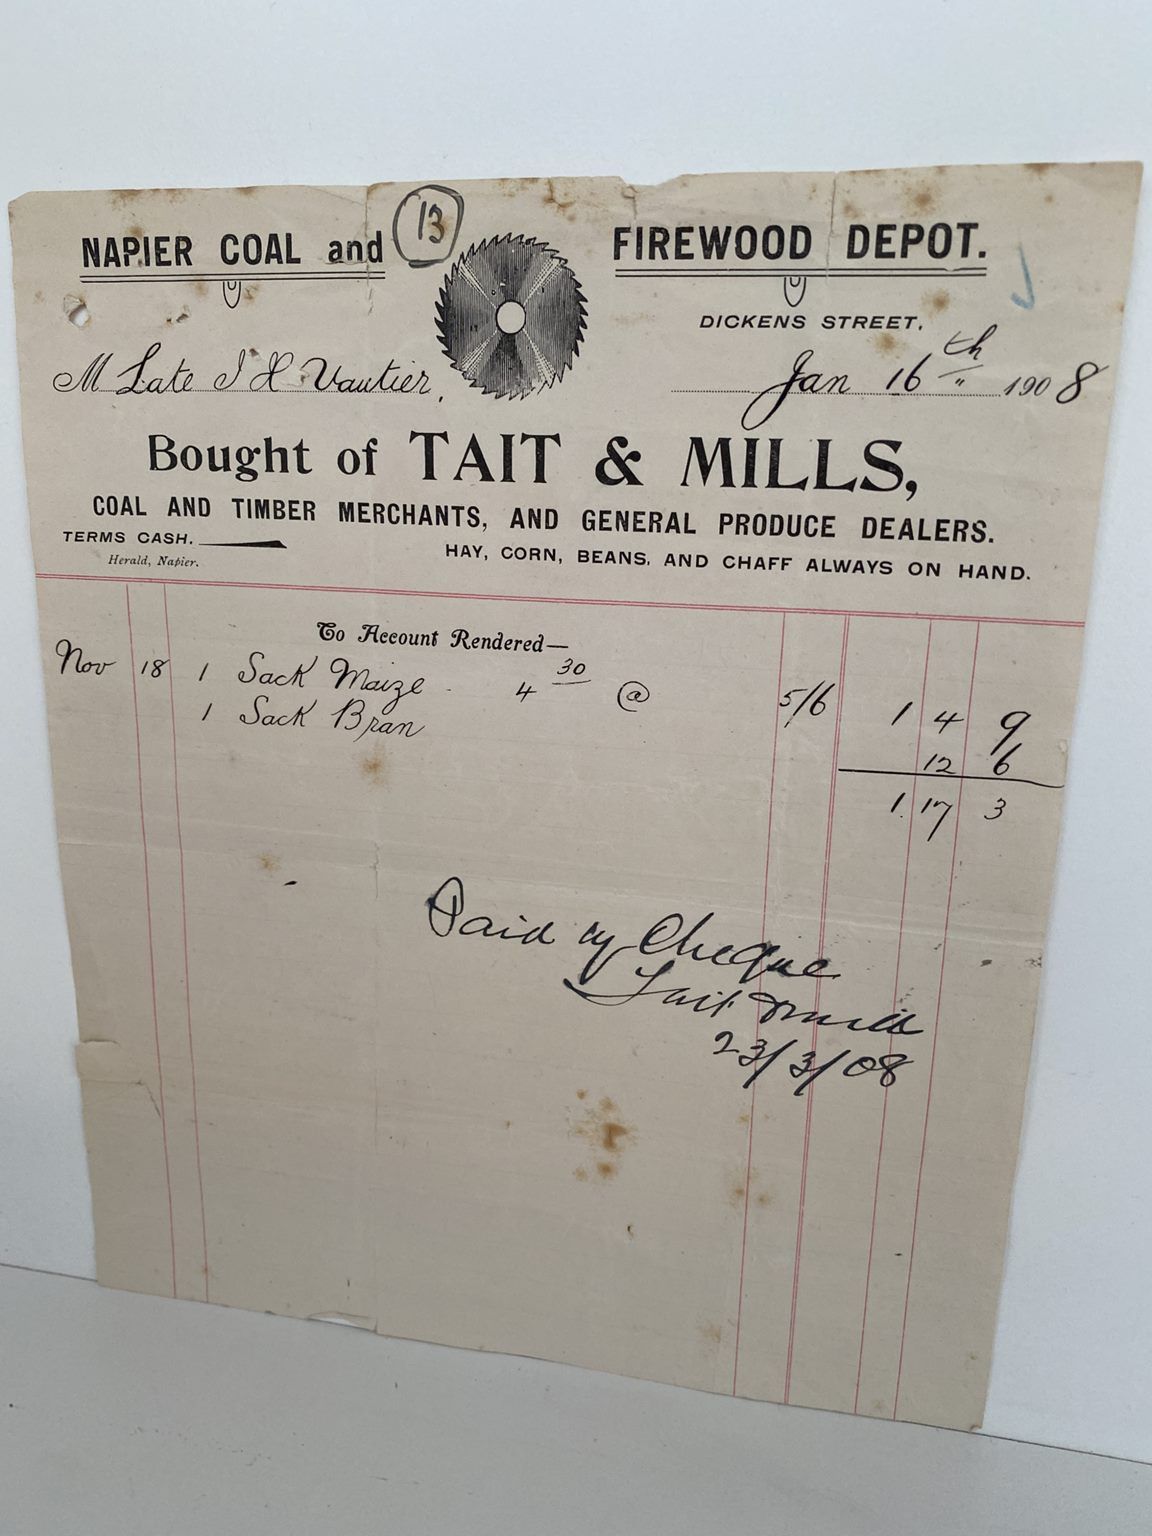 13
NAPIER COAL and FIREWOOD DEPOT.
DICKENS STREET,
M Late J H Vautier, Jan 16th 1908
Bought of TAIT & MILLS,
COAL AND TIMBER MERCHANTS, AND GENERAL PRODUCE DEALERS.
TERMS CASH. HAY, CORN, BEANS, AND CHAFF ALWAYS ON HAND.
Herald, Napier.
To Account Rendered—
Nov 18 1 Sack Maize 4 30 @ 5/6 1 4 9
1 Sack Bran 12 6
1. 17 3
Paid by Cheque
Tait & Mills
23/3/08